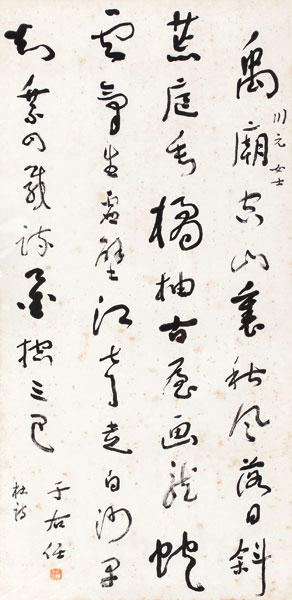 禹廟空山裏秋風落日斜
川元女士
荒庭垂橘柚古屋画龍蛇
雲氣生虛壁江聲走白沙早
知乘四載疏鑿控三巴
于右任
杜詩